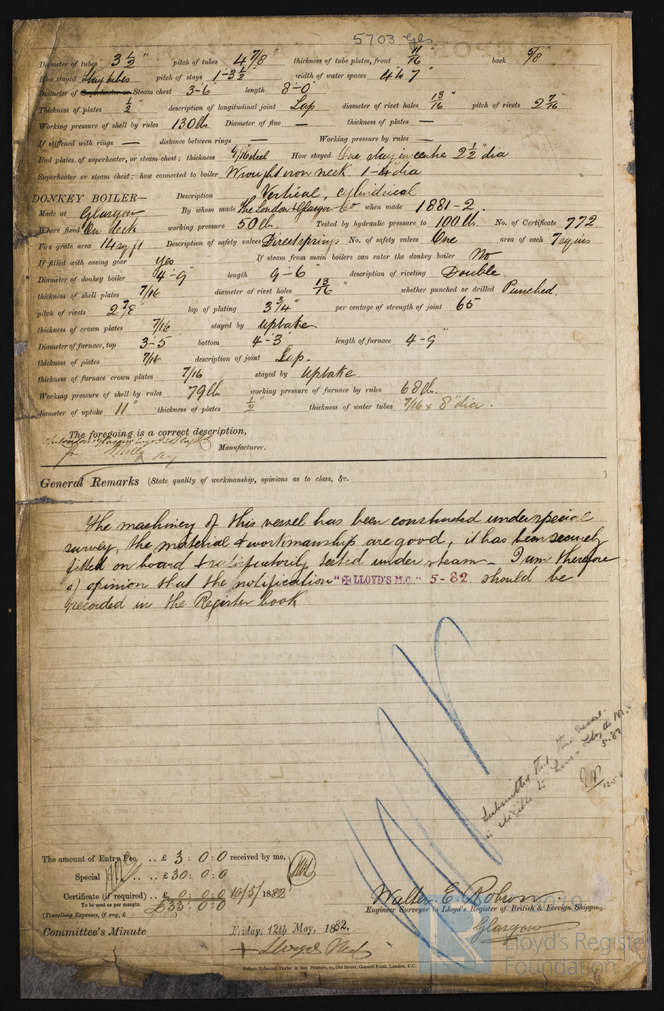 5703 Gls
Diameter of tubes 3 1/2" pitch of tubes 4 7/8" thickness of tube plates, front 11/16" back 5/8"
How stayed Stay tubes pitch of stays 1-3 1/2" width of water spaces 4 to 7"
Diameter of Superheater or Steam chest 3-6" length 8-0"
Thickness of plates 1/2" description of longitudinal joint Lap diameter of rivet holes 13/16" pitch of rivets 2 7/16"
Working pressure of shell by rules 130 lb. Diameter of flue — thickness of plates —
If stiffened with rings — distance between rings — Working pressure by rules —
End plates of superheater, or steam chest; thickness 9/16 steel How stayed One stay in centre 2 1/2" dia
Superheater or steam chest; how connected to boiler Wrought iron neck. 1-4 dia
DONKEY BOILER— Description Vertical, cylindrical
Made at Glasgow By whom made The London & Glasgow Co when made 1881-2.
Where fixed On deck working pressure 50 lb. Tested by hydraulic pressure to 100 lb. No. of Certificate 772
Fire grate area 14 sq ft Description of safety valves Direct springs No. of safety valves One area of each 7 sq ins
If fitted with easing gear Yes If steam from main boilers can enter the donkey boiler No
Diameter of donkey boiler 4-9" length 9-6" description of riveting Double
thickness of shell plates 7/16 diameter of rivet holes 13/16" whether punched or drilled Punched
pitch of rivets 2 7/8" lap of plating 3 3/4" per centage of strength of joint 65
thickness of crown plates 7/16 stayed by uptake
Diameter of furnace, top 3-5 bottom 4-3" length of furnace 4-9"
thickness of plates 7/16 description of joint Lap.
thickness of furnace crown plates 7/16 stayed by uptake
Working pressure of shell by rules 79 lb working pressure of furnace by rules 68 lb.
diameter of uptake 11" thickness of plates 1/2" thickness of water tubes 7/16 x 8" dia.
The foregoing is a correct description,
Manufacturer.
General Remarks (State quality of workmanship, opinions as to class, &c. )
The machinery of this vessel has been constructed under special
survey, the material & workmanship are good, it has been securely
fitted on board & satisfactorily tested under steam. I am therefore
of opinion that the notification "✠ LLOYD'S M.C." 5-82 should be
recorded in the Register book
Submitted that this vessel
is eligible to have Lloyds M.C.
5.82
The amount of Entry Fee .. £ 3 : 0 : 0 received by me,
Special .. £ 30 : 0 : 0
Certificate (if required) .. £ 0 : 0 : 0 10/5/1882
To be sent as per margin.
£33 : 0 : 0
(Travelling Expenses, if any, £ )
Walter E. Robson
Engineer Surveyor to Lloyd's Register of British & Foreign Shipping.
Glasgow
Committee's Minute Friday, 12th May, 1882.
+ Lloyds M.C.
Robert Edmund Taylor & Son Printers, 19, Old Street, Goswell Road, London, E.C.
Lloyd's Register
Foundation